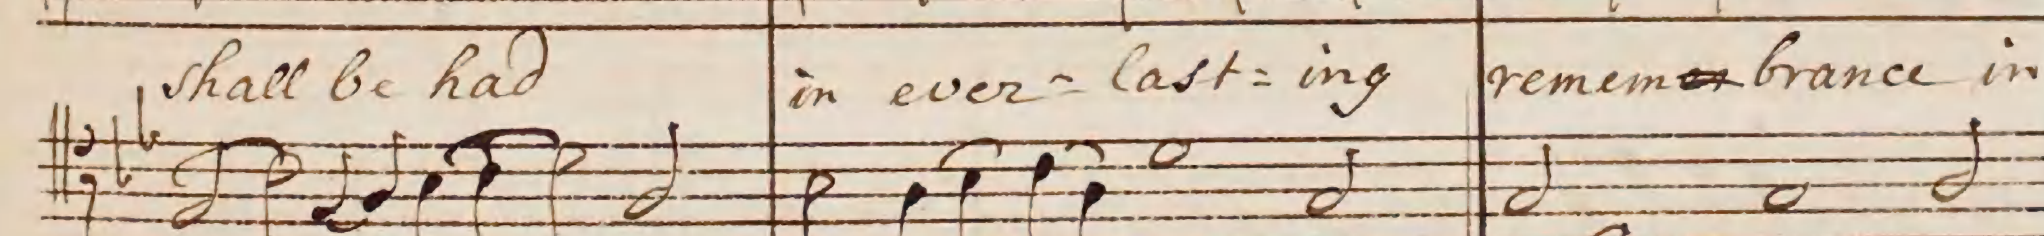 shall be had in ever- last= ing remem brance in